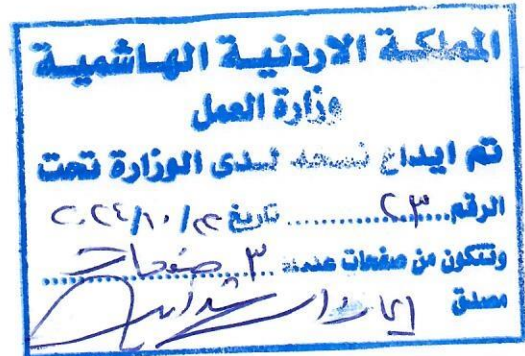 المملكة الاردنية الهاشمية
وزارة العمل
تم ايداع نسخه لدى الوزارة تحت
الرقم ٢٣ تاريخ ٢٠٢٤/١٠/
وتتكون من صفحات عدد ٣ صفحات
مصدق